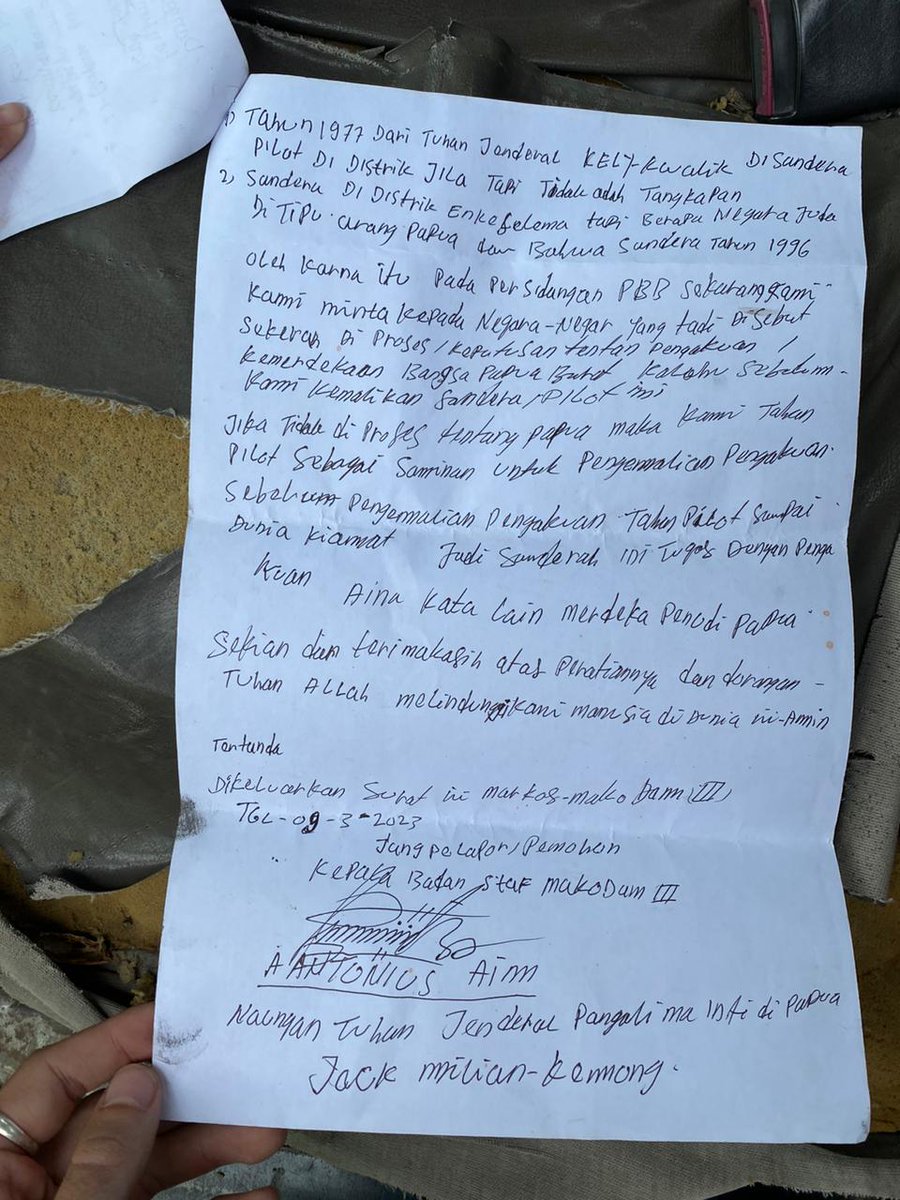 1) Tahun 1977 Dari Tuhan Jenderal KELY-Kwalik DiSandera
Pilot Di Distrik Jila Tapi Tidak adah Tangkapan
2) Sandera Di Distrik Enkefelema tapi Berapa Negara Juda
Di Tipu orang Papua dan Bahwa Sandera Tahun 1996
oleh Karna itu Pada Persidangan PBB Sekarang Kami
Kami minta Kepada Negara-Negar yang tadi DiSebut
Sekeran Di Proses/Keputusan tentan Pengakuan/
Kemerdekaan Bangsa Papua Barat Kalahu Sebelum-
Kami Kemalikan Sandera/Pilot ini
Jika Tidak di Proses tentang papua maka Kami Tahan
Pilot Sebagai Saminan untuk Pengemalian Pengakuan.
Sebelum Pengemalian Pengakuan Tahan Pilot Sampai
Dunia Kiamat Jadi Sanderah ini Tugas Dengan Penga
Kuan
Aina Kata Lain merdeka Penudi Papua
Sekian dan terimakasih atas Peratiannya dan dorangan-
Tuhan ALLAH melindungi Kami manusia di Dunia ini-Amin
Tentunda
Dikeluarkan Surat ini markos-mako Dam III
TGL-09-3-2023
Jang Pelapor/Pemohon
Kepala Badan Staf makoDam III
AANTONIUS Aim
Naungan Tuhan Jenderal Pangalima Inti di Papua
Jack milian-Kemong.